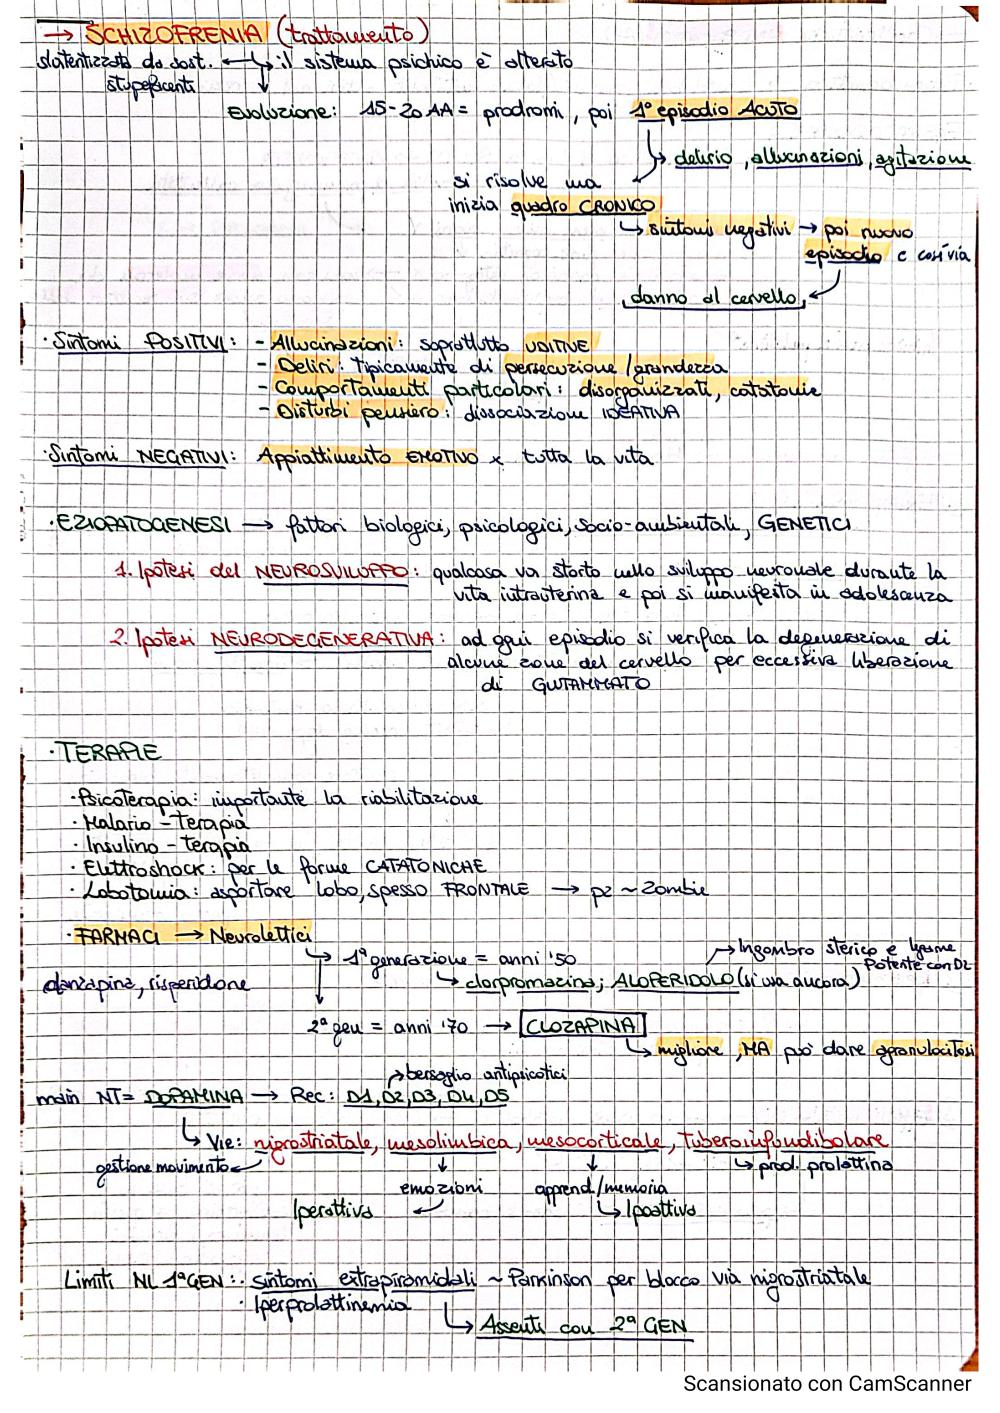 → SCHIZOFRENIA (trattamento)
slatentizzata da sost. ← → il sistema psichico è alterato
stupefacenti
Evoluzione: 15-20 AA = prodromi, poi 1° episodio ACUTO
→ delirio, allucinazioni, agitazione
si risolve ma
inizia quadro CRONICO
→ sintomi negativi → poi nuovo
episodio e così via
danno al cervello
· Sintomi POSITIVI: - Allucinazioni: soprattutto UDITIVE
- Deliri: Tipicamente di persecuzione/grandezza
- Comportamenti particolari: disorganizzati, catatonie
- Disturbi pensiero: dissociazione IDEATIVA
· Sintomi NEGATIVI: Appiattimento EMOTIVO x tutta la vita
· EZIOPATOGENESI → fattori biologici, psicologici, socio-ambientali, GENETICI
1. Ipotesi del NEUROSVILUPPO: qualcosa va storto nello sviluppo neuronale durante la
vita intrauterina e poi si manifesta in adolescenza
2. Ipotesi NEURODEGENERATIVA: ad ogni episodio si verifica la degenerazione di
alcune zone del cervello per eccessiva liberazione
di GLUTAMMATO
· TERAPIE
· Psicoterapia: importante la riabilitazione
· Malario-Terapia
· Insulino-Terapia
· Elettroshock: per le forme CATATONICHE
· Lobotomia: asportare lobo, spesso FRONTALE → pz ~ Zombie
· FARMACI → Neurolettici
→ Ingombro sterico e legame
Potente con D2
→ 1ª generazione = anni '50
→ clorpromazina; ALOPERIDOLO (si usa ancora)
olanzapina, risperidone
2ª gen = anni '70 → CLOZAPINA
→ migliore, MA può dare agranulocitosi
→ bersaglio antipsicotici
main NT = DOPAMINA → Rec: D1, D2, D3, D4, D5
→ Vie: nigrostriatale, mesolimbica, mesocorticale, Tuberoinfundibolare
gestione movimento ← → prod. prolattina
emozioni apprend/memoria
Iperattiva ← → Ipoattiva
Limiti NL 1ª GEN: · sintomi extrapiramidali ~ Parkinson per blocco via nigrostriatale
· Iperprolattinemia
→ Assenti con 2ª GEN
Scansionato con CamScanner